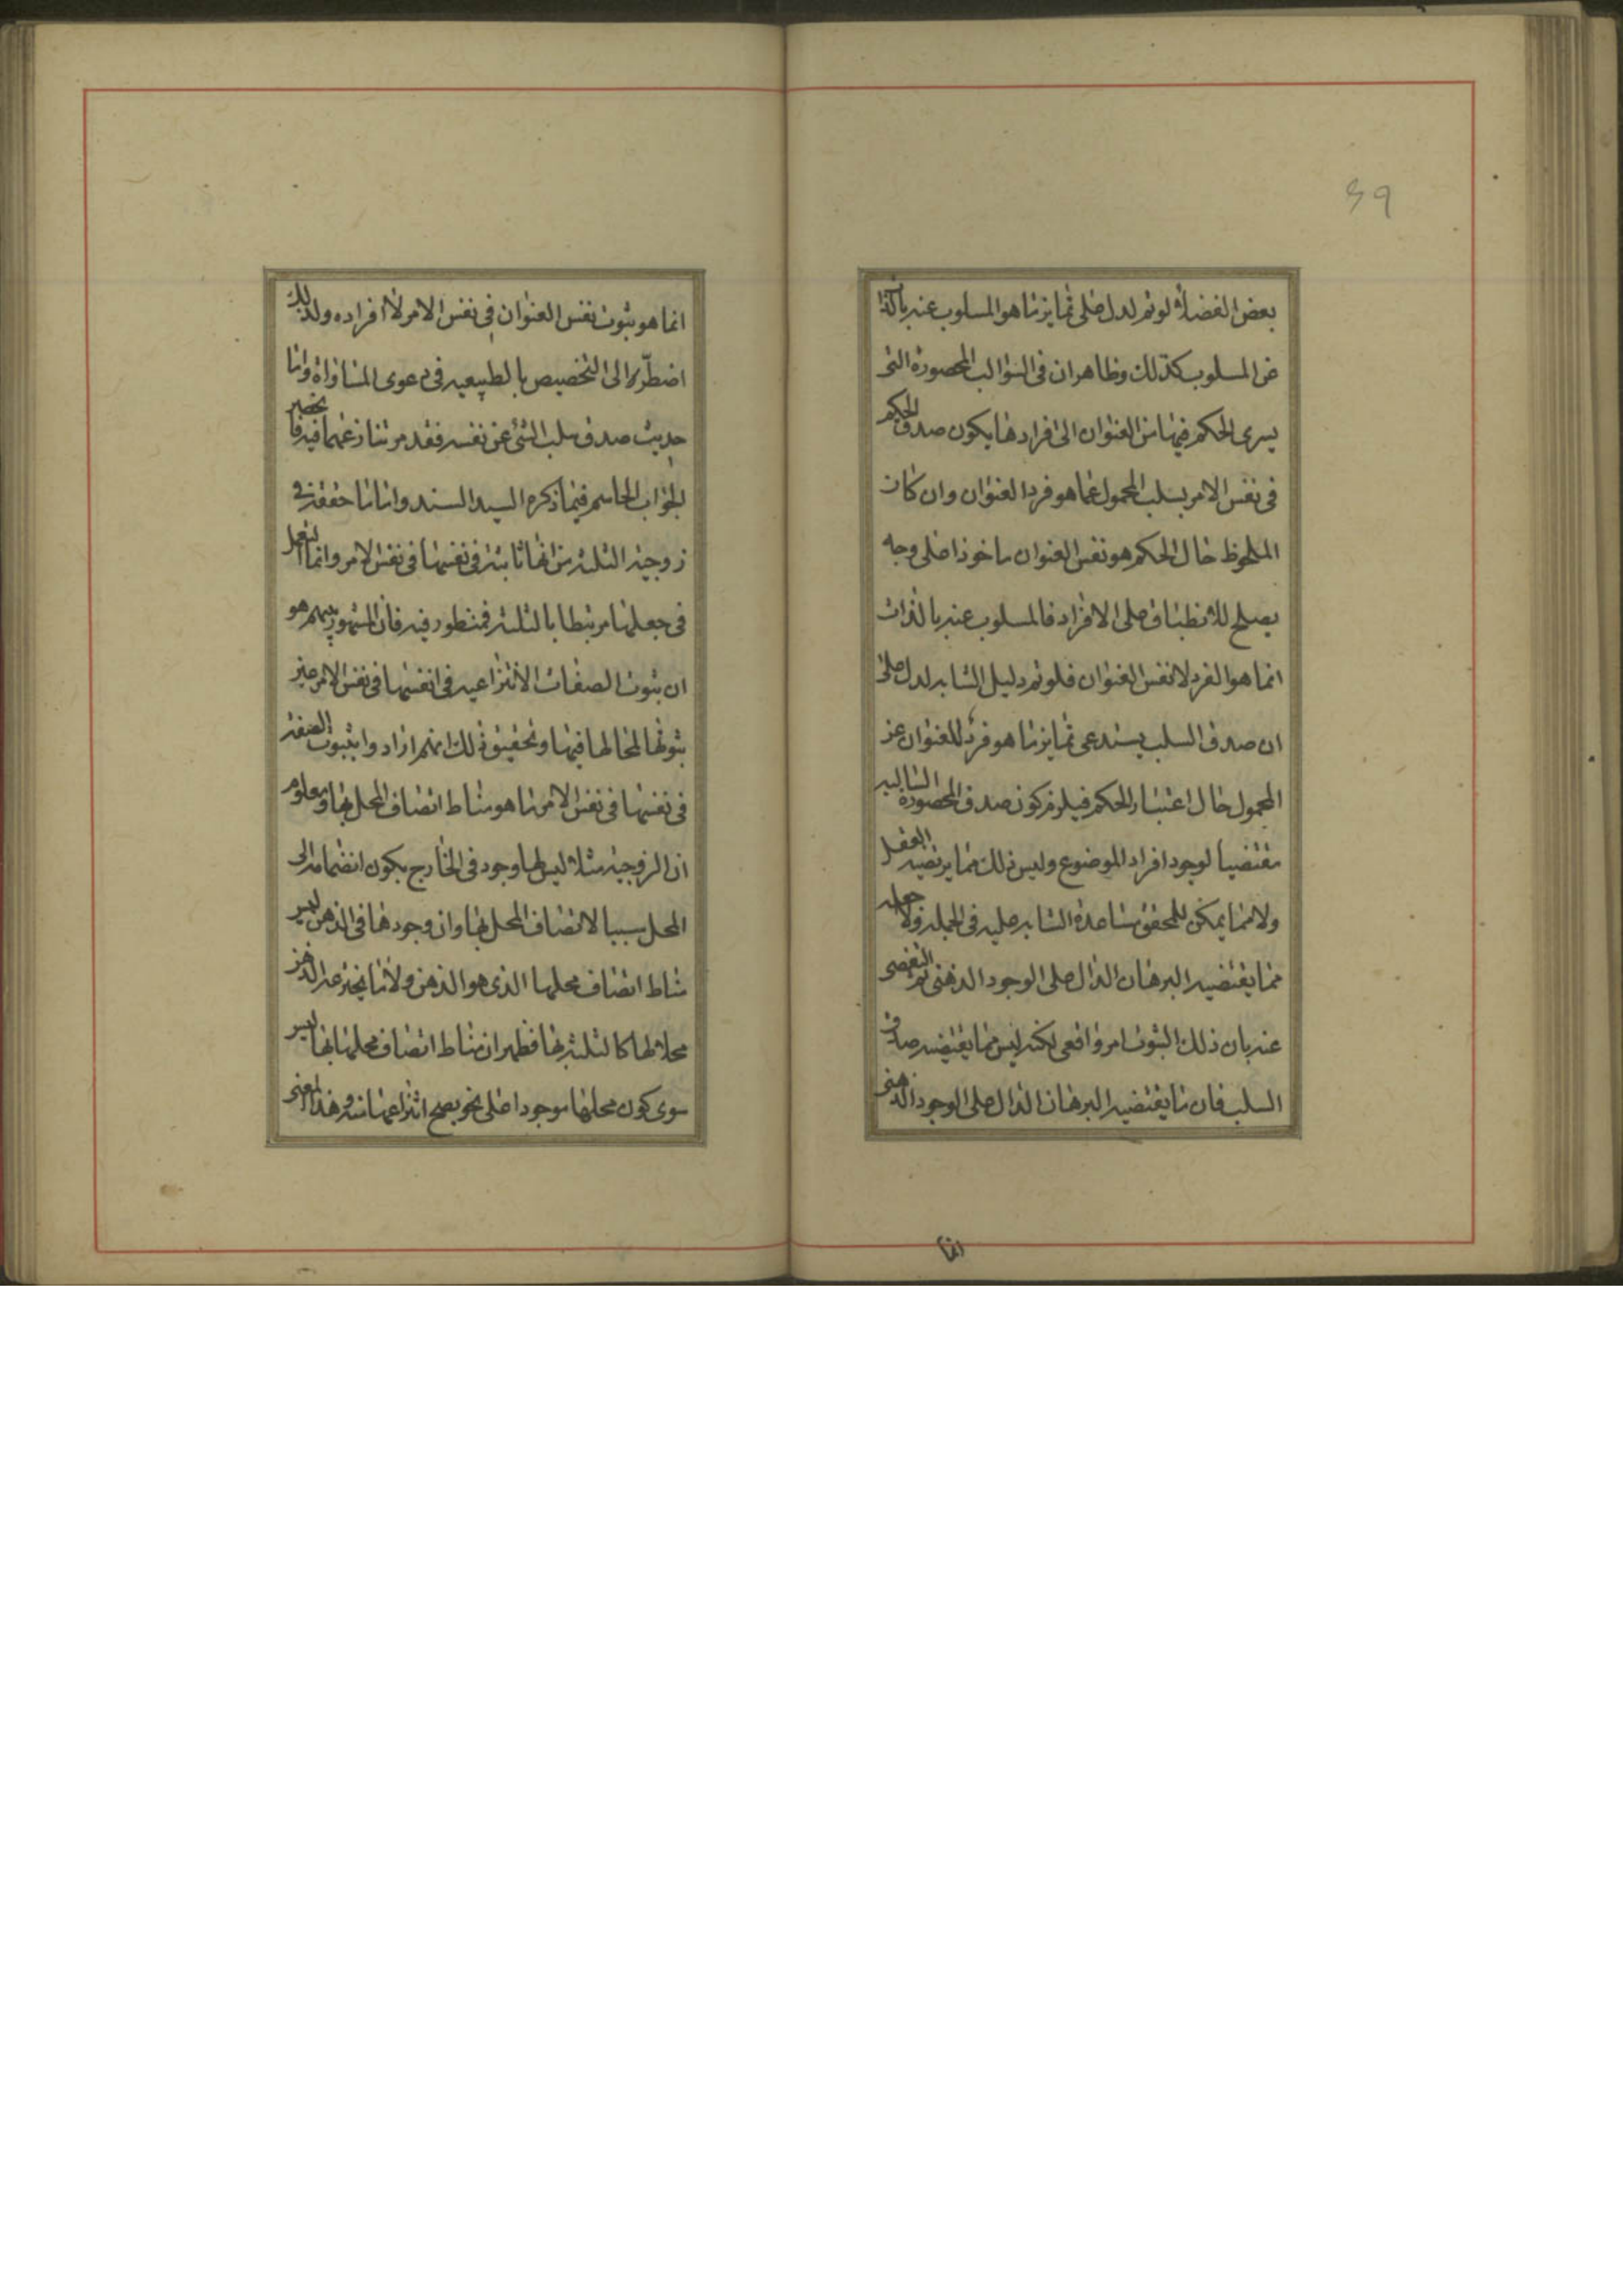 ٤٩
بعض الفضلاء لو تم لدل على تمايز ما هو المسلوب عنه بالذات
عن المسلوب كذلك وظاهر ان فى السوالب المحصورة التى
يسرى الحكم فيها من العنوان الى افرادها يكون صدق الحكم
فى نفس الامر بسلب المحمول عما هو فرد العنوان وان كان
الملحوظ حال الحكم هو نفس العنوان ماخوذا على وجه
يصلح للانطباق على الافراد فالمسلوب عنه بالذات
انما هو الفرد لا نفس العنوان فلو تم دليل الشابه لدل على
ان صدق السلب يستدعى تمايز ما هو فرد للعنوان عن
المحمول حال اعتبار الحكم فيلزم كون صدق المحصورة السالبة
مقتضيا لوجود افراد الموضوع وليس ذلك مما يرتضيه العقل
ولا مما يمكن للمحقق مساعدة الشابه عليه فى الجملة ولا جعله
مما يقتضيه البرهان الدال على الوجود الذهنى ثم التفصى
عنه بان ذلك الثبوت امر واقعى لكنه ليس مما يقتضيه صدق
السلب فان ما يقتضيه البرهان الدال على الوجود الذهنى
انما
انما هو ثبوت نفس العنوان فى نفس الامر لا افراده ولذلك
اضطر الى التخصيص بالطبيعيه فى دعوى المساواة واما
حديث صدق سلب الشئ عن نفسه فقد مر تنازعهما فيه فا
الجواب الحاسم فيما ذكره السيد السند واما ما حققه فى
زوجية الثلثة من انها ثابتة فى نفسها فى نفس الامر وانما التعمل
فى جعلها مرتبطا بالثلثة فمنظور فيه فان المشهور بينهم هو
ان ثبوت الصفات الانتزاعيه فى انفسها فى نفس الامر عين
ثبوتها لمحالها فيها وتحقيق ذلك انهم ارادوا بثبوت الصفة
فى نفسها فى نفس الامر ما هو مناط اتصاف المحل بها ومعلوم
ان الزوجية مثلا ليس لها وجود فى الخارج يكون انضمامه الى
المحل سببا لاتصاف المحل بها وان وجودها فى الذهن ليس
مناط اتصاف محلها الذى هو الذهن ولا ما يخترعه الذهن
محلا لها كالثلثة بها فظهر ان مناط اتصاف محلها بها ليس
سوى كون محلها موجودا على نحو يصح انتزاعها منه وهذا المعنى